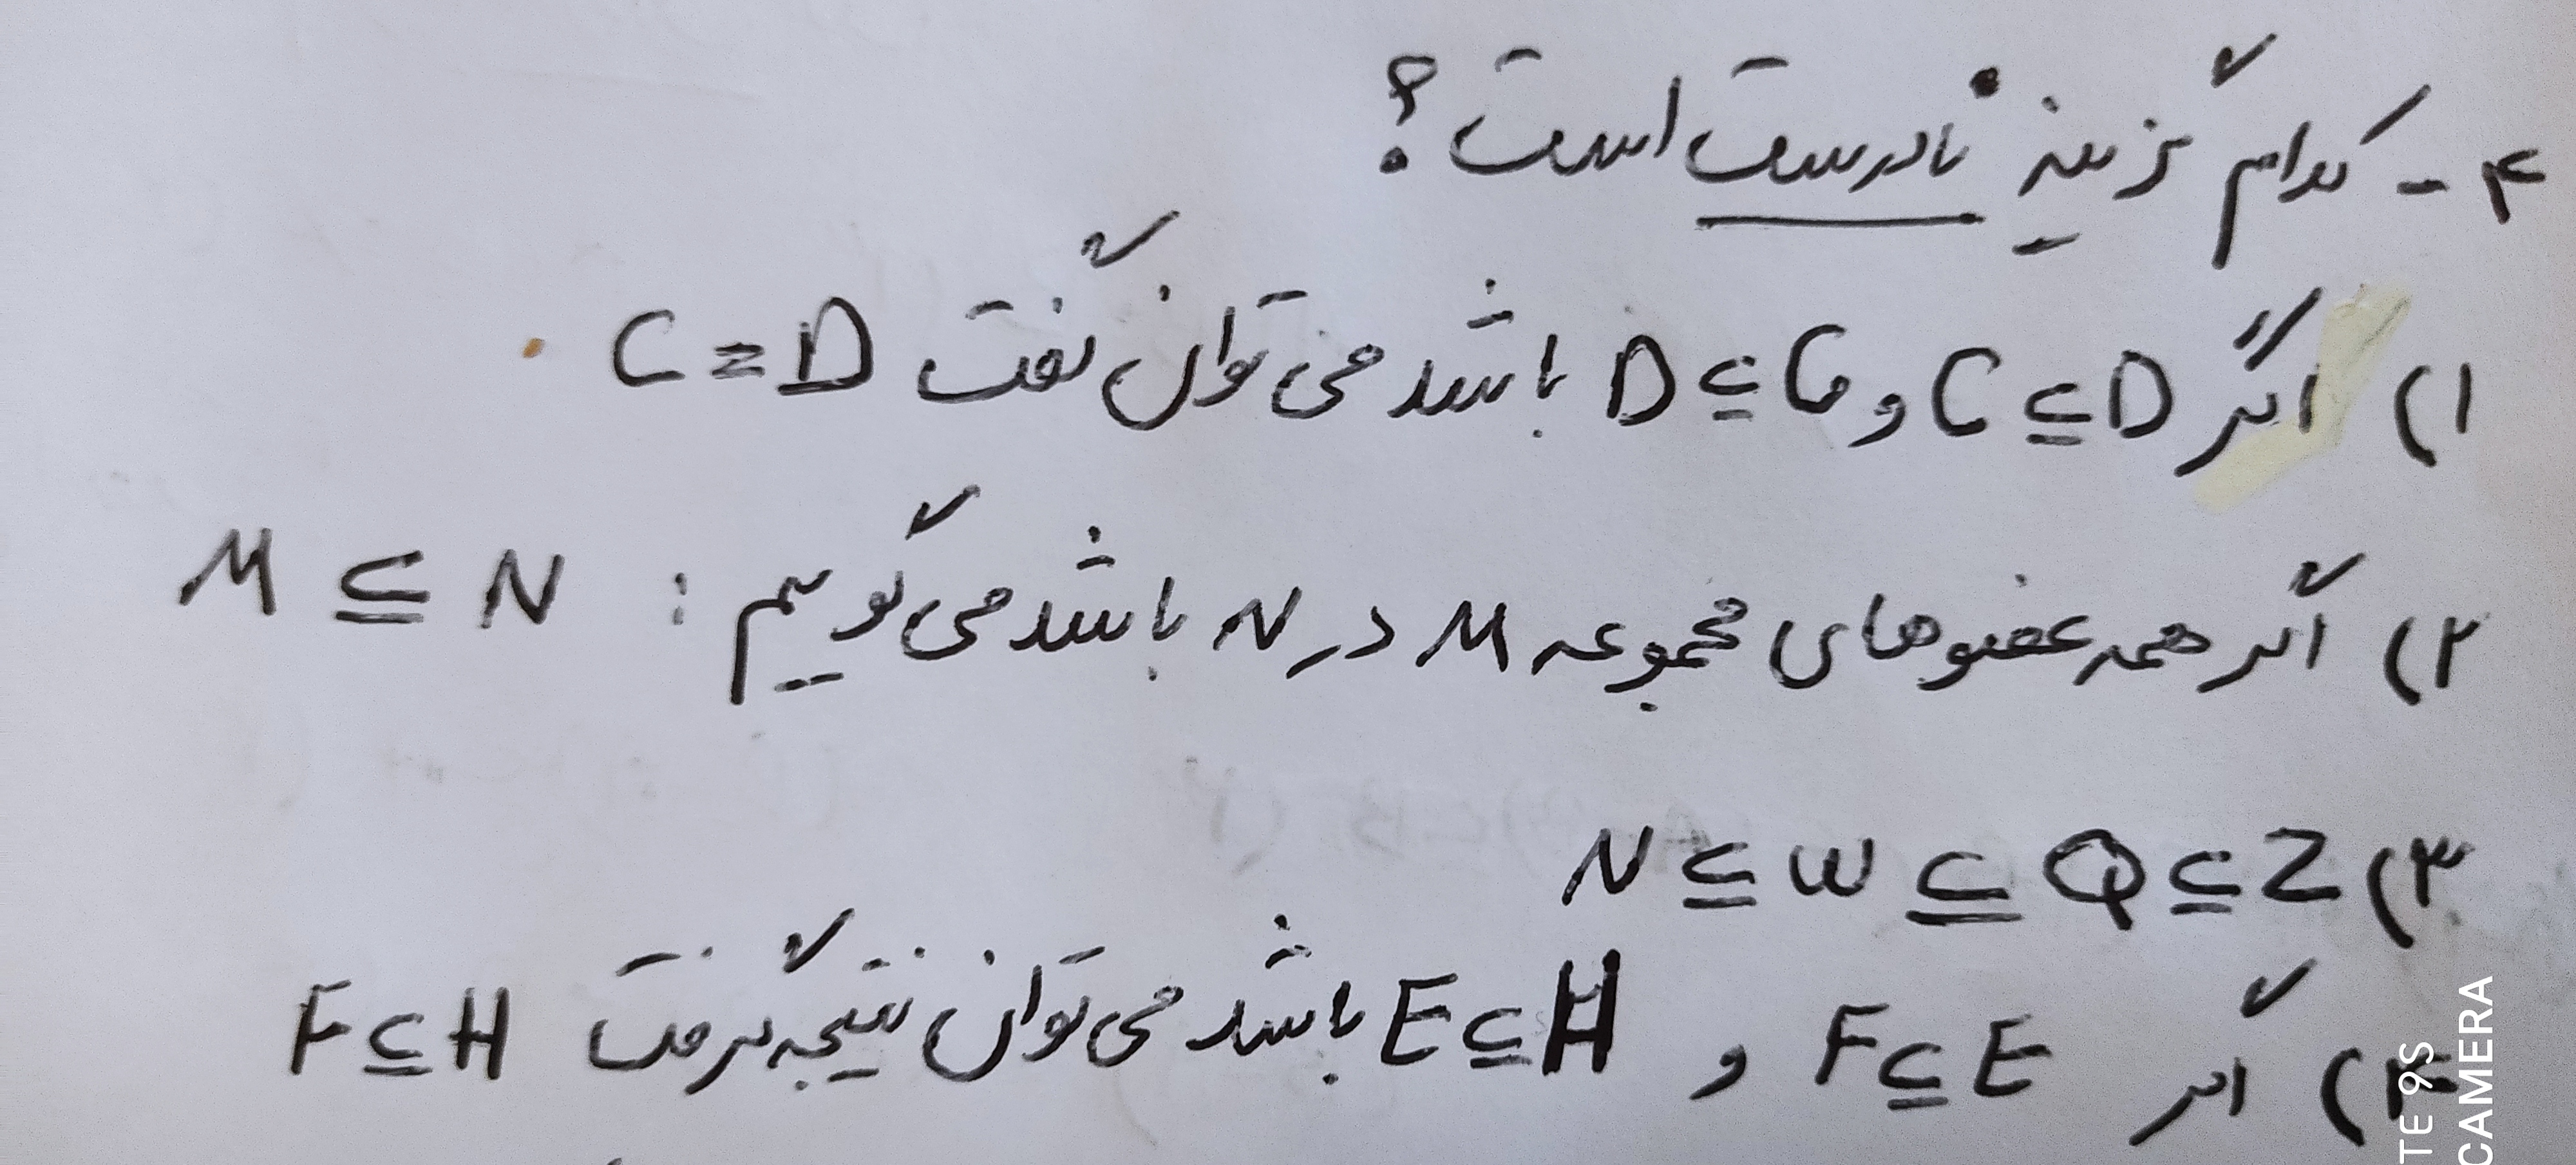 ۴ - کدام گزینه نادرست است؟
۱) اگر C ⊆ D و D ⊆ C باشد می توان گفت C = D
۲) اگر همه عضوهای مجموعه M در N باشد می گوییم : M ⊆ N
۳) N ⊆ W ⊆ Q ⊆ Z
۴) اگر F ⊆ E و E ⊆ H باشد می توان نتیجه گرفت F ⊆ H
TE 9S
CAMERA